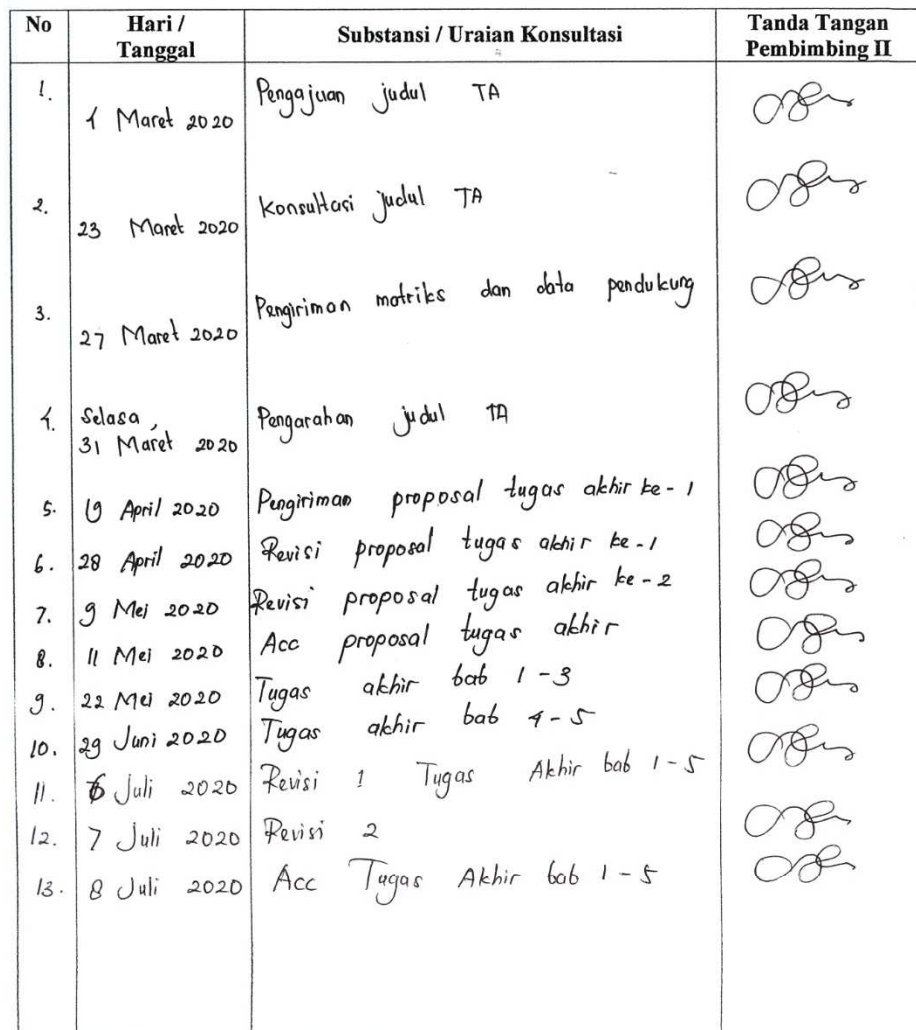 No Hari / Tanggal Substansi / Uraian Konsultasi Tanda Tangan Pembimbing II
1. 4 Maret 2020 Pengajuan judul TA
2. 23 Maret 2020 Konsultasi judul TA
3. 27 Maret 2020 Pengiriman matriks dan data pendukung
4. Selasa, 31 Maret 2020 Pengarahan judul TA
5. 19 April 2020 Pengiriman proposal tugas akhir ke-1
6. 28 April 2020 Revisi proposal tugas akhir ke-1
7. 9 Mei 2020 Revisi proposal tugas akhir ke-2
8. 11 Mei 2020 Acc proposal tugas akhir
9. 22 Mei 2020 Tugas akhir bab 1-3
10. 29 Juni 2020 Tugas akhir bab 4-5
11. 6 Juli 2020 Revisi 1 Tugas Akhir bab 1-5
12. 7 Juli 2020 Revisi 2
13. 8 Juli 2020 Acc Tugas Akhir bab 1-5